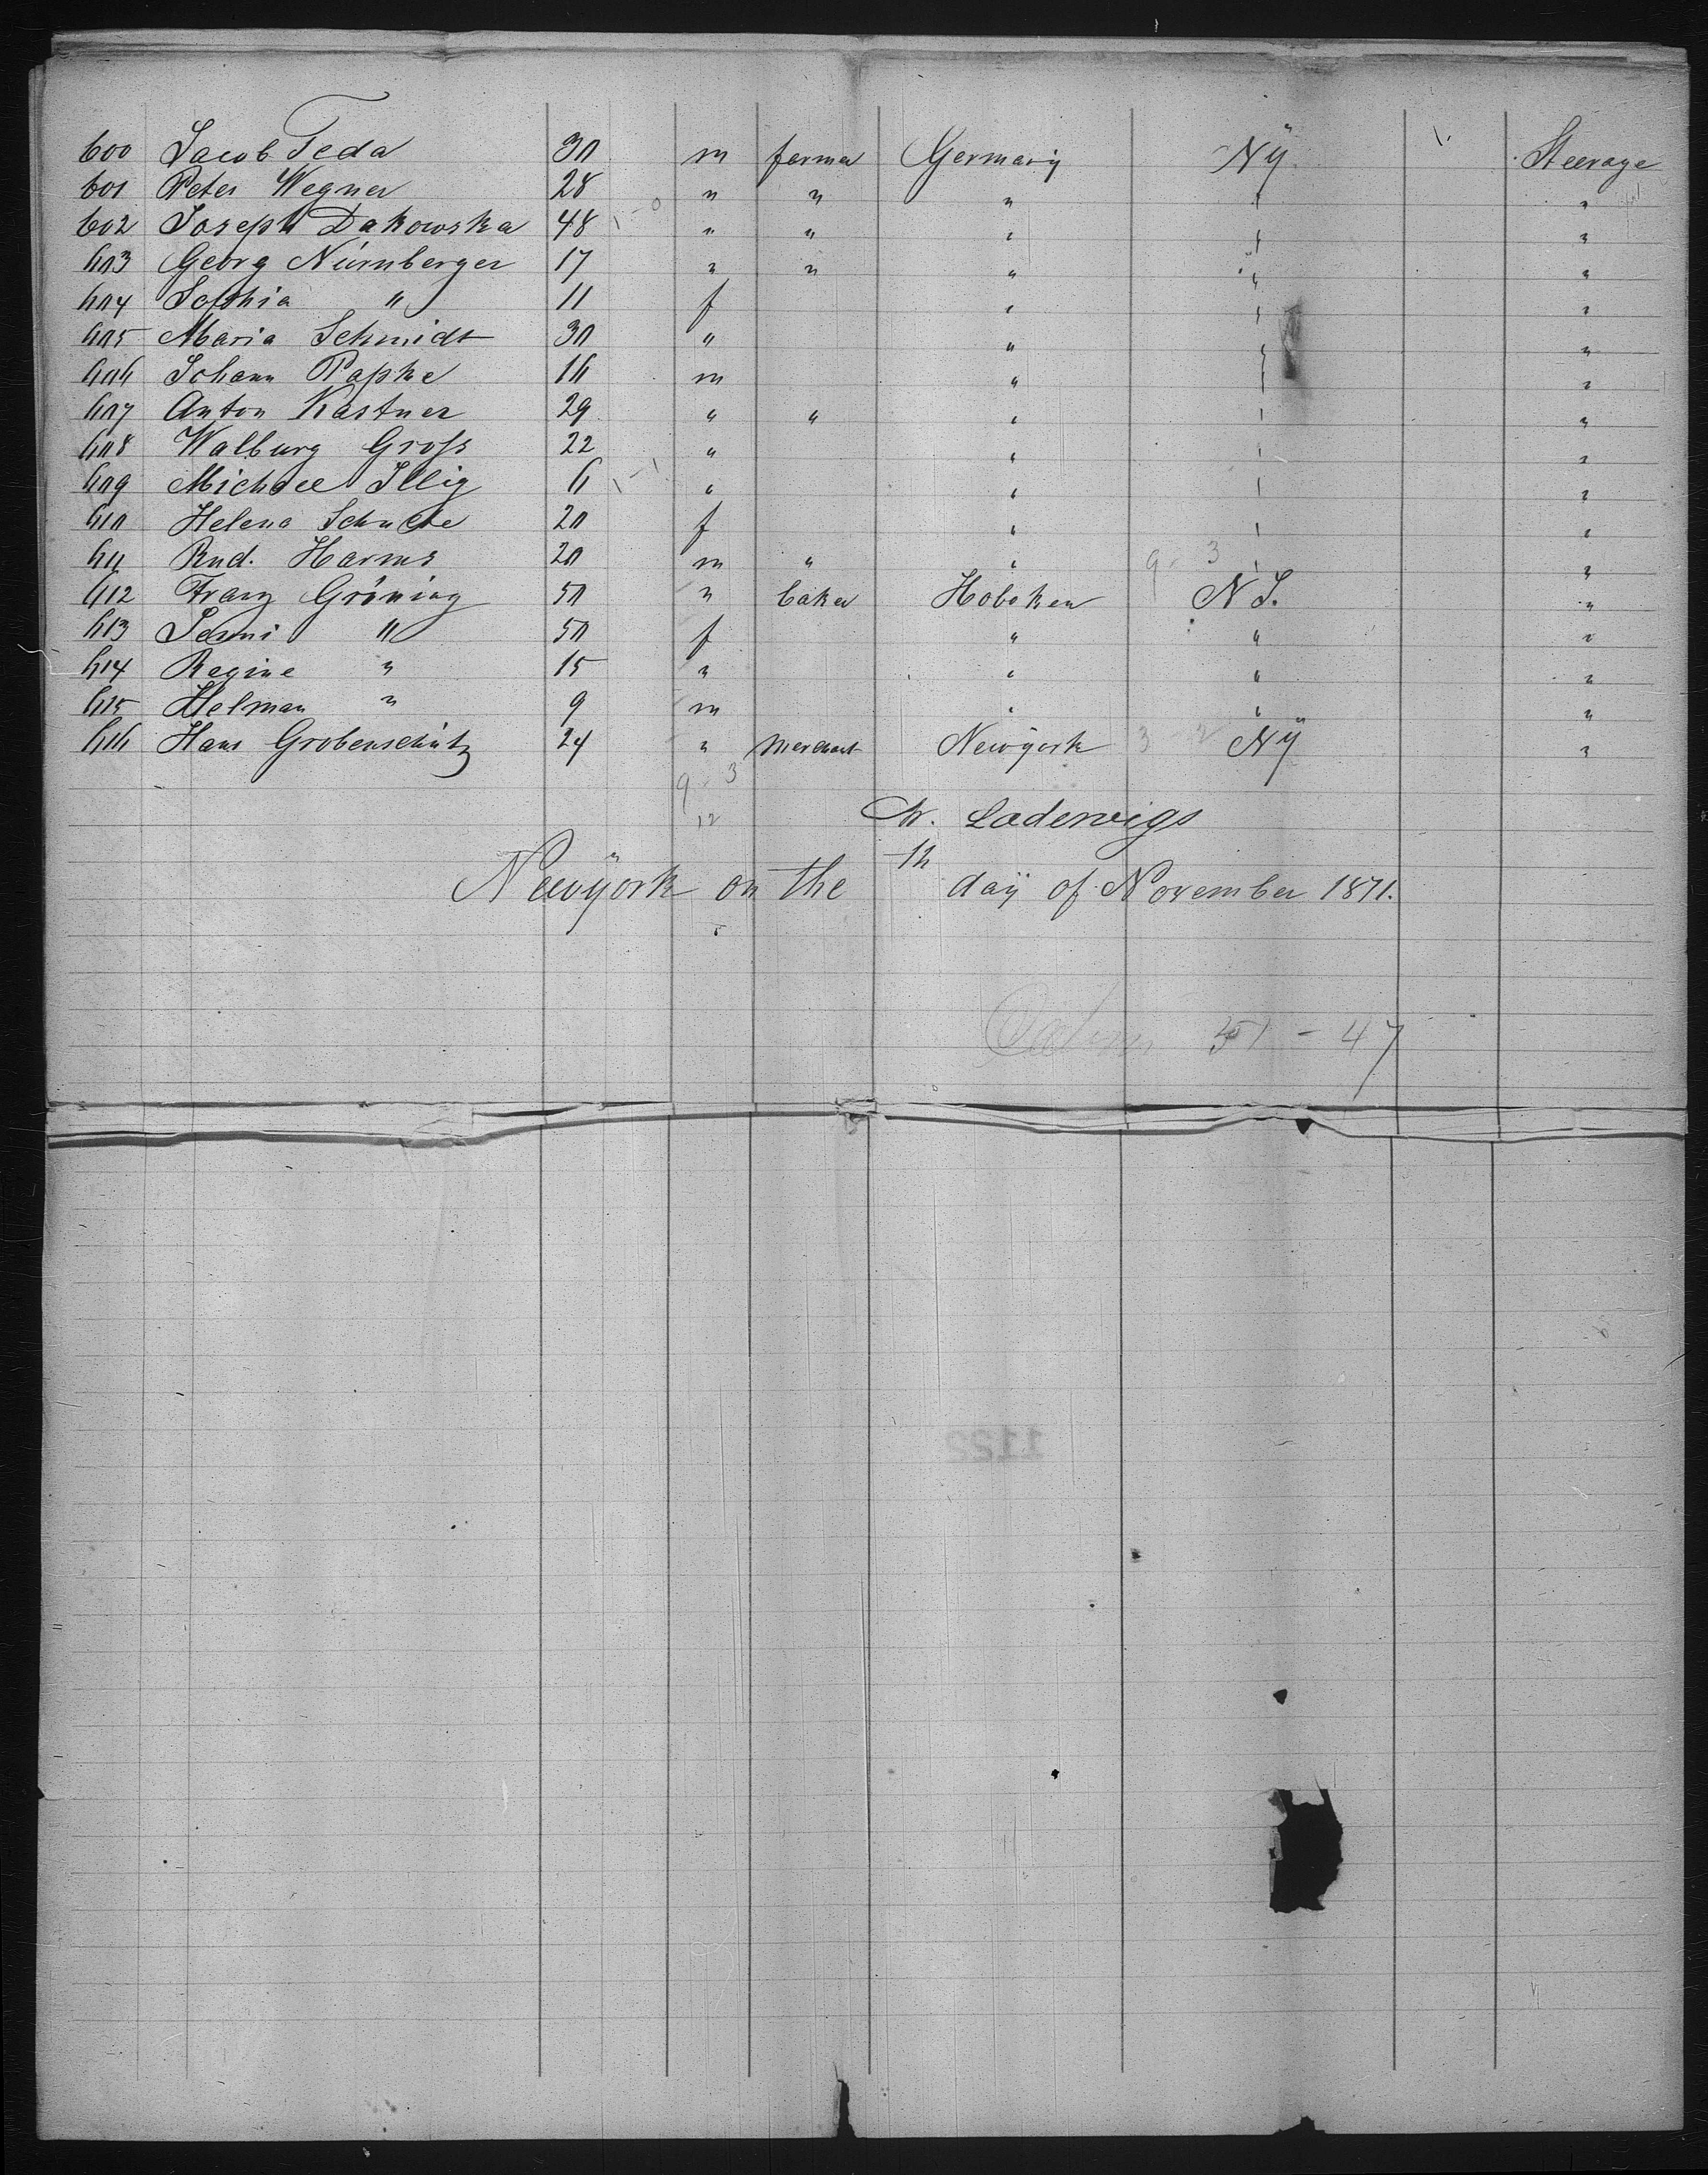 600 Jacob Feda 30 m farmer Germany NY. Steerage
601 Peter Wegner 28 " " " " "
602 Joseph Dakowska 48 1-0 " " " " "
603 Georg Nürnberger 17 " " " " "
604 Sophia " 11 f " " "
605 Maria Schmidt 30 " " " "
606 Johann Papke 16 m " " "
607 Anton Kastner 29 " " " " "
608 Walburg Gross 22 " " " "
609 Michael Illig 6 1-1 " " " "
610 Helena Schulte 20 f " " "
611 Rud. Harms 20 m " " 9-3 " "
612 Franz Gröning 50 " baker Hoboken N J. "
613 Jenni " 50 f " " "
614 Regine " 15 " " " "
615 Helman " 9 m " " "
616 Hans Grobenschütz 24 " merchant Newyork 3-2 NY "
9-3
12
Ladewigs
Newyork on the th day of November 1871.
51-47
1122